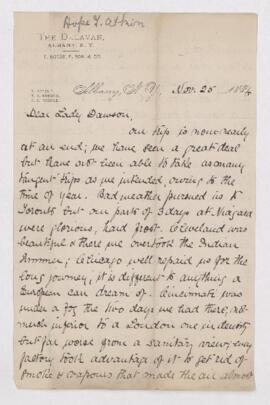 Hope T. Atkin
THE DELAVAN,
ALBANY, N.Y.
T. ROESSLE & SON
Albany, N.Y. Nov. 25 1884
Dear Lady Dawson,
Our trip is now nearly
at an end; we have seen a great deal
but have not been able to take as many
tangent trips as we intended, owing to the
time of year. Bad weather pursued us to
Toronto but our parts of 3 days at Niagara
were glorious, hard frost. Cleveland was
beautiful & there we overtook the Indian
Summer; Chicago well repaid us for the
long journey; it is different to anything a
European can dream of. Cincinnati was
under a fog the two days we had there, not
much inferior to a London one in density
but far worse from a sanitary view; every
factory took advantage of it to get rid of
smoke & vapours that made the air almost